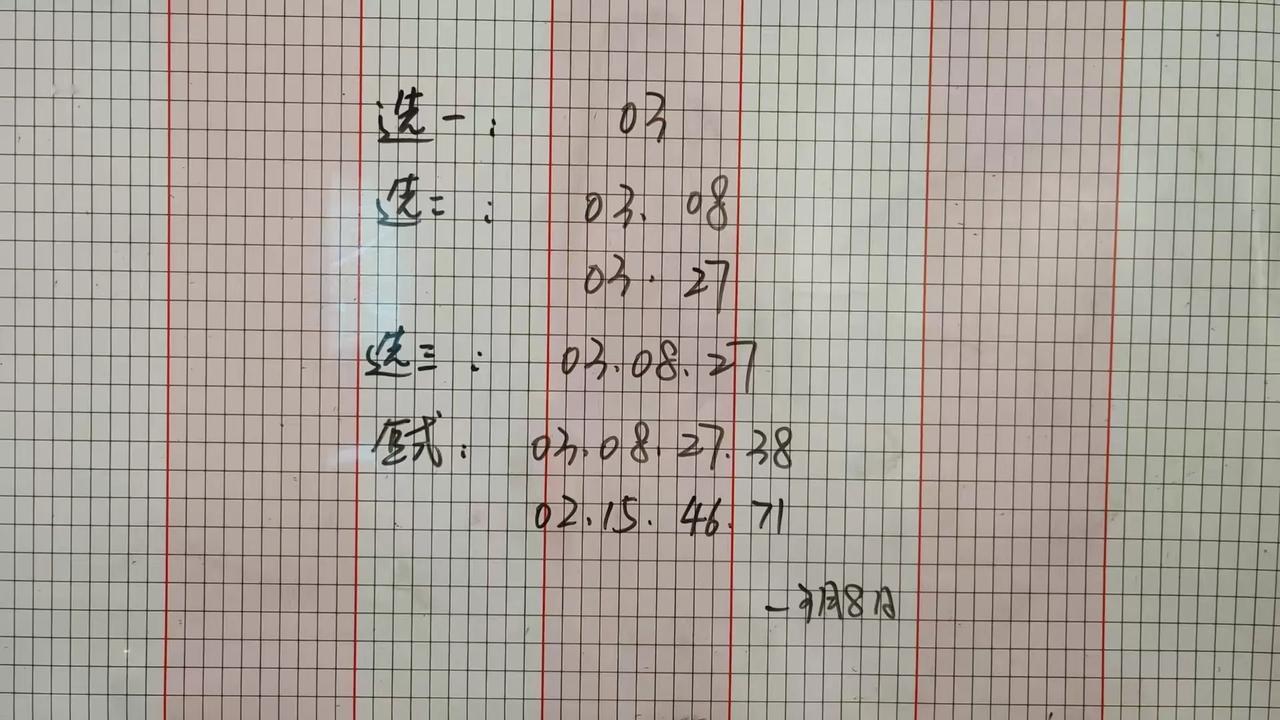 选一： 03
选二： 03. 08
03. 27
选三： 03.08.27
复式： 03.08.27.38
02.15.46.71
月8日